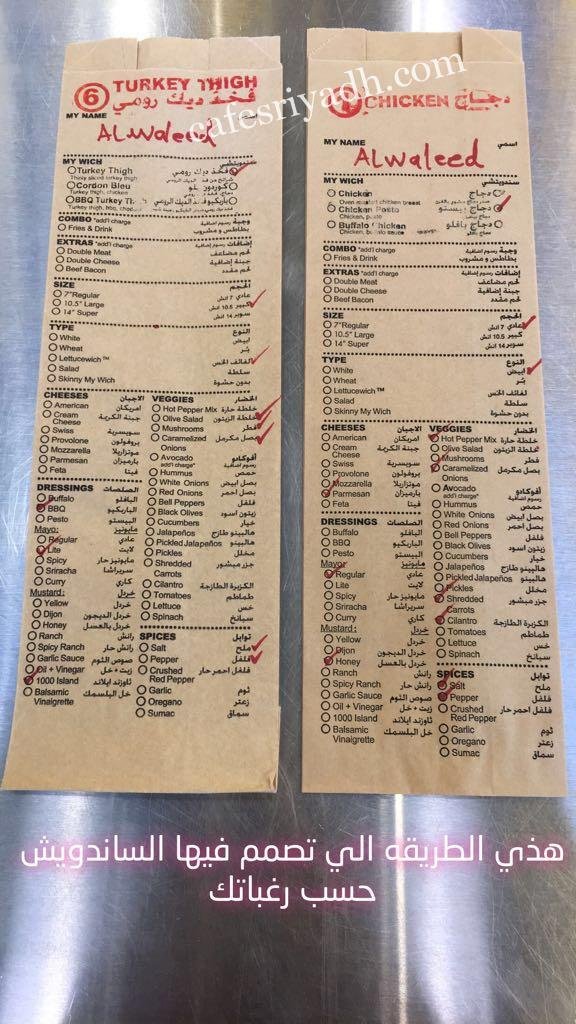 cafesriyadh.com
6 TURKEY THIGH
فخذ ديك رومي
MY NAME اسمي
ALwaleed
MY WICH سندويتشي
Turkey Thigh فخذ ديك رومي
Thinly sliced turkey thigh
Cordon Bleu كوردون بلو
Turkey thigh, chicken
BBQ Turkey Thigh باربكيو فخذ الديك الرومي
COMBO *add'l charge وجبة رسوم إضافية
Fries & Drink بطاطس و مشروب
EXTRAS *add'l charge إضافات رسوم إضافية
Double Meat لحم مضاعف
Double Cheese جبنة إضافية
Beef Bacon لحم مقدد
SIZE الحجم
7" Regular عادي 7 انش
10.5" Large كبير 10.5 انش
14" Super سوبر 14 انش
TYPE النوع
White ابيض
Wheat بُر
Lettucewich™ لفائف الخس
Salad سلطة
Skinny My Wich بدون حشوة
CHEESES الاجبان
American امريكان
Cream Cheese جبنة الكريمة
Swiss سويسرية
Provolone بروفولون
Mozzarella موتزاريلا
Parmesan بارميزان
Feta فيتا
DRESSINGS الصلصات
Buffalo البافلو
BBQ الباربكيو
Pesto البيستو
Mayo: مايونيز
Regular عادي
Lite لايت
Spicy مايونيز حار
Sriracha سريراشا
Curry كاري
Mustard: خردل
Yellow خردل
Dijon خردل الديجون
Honey خردل بالعسل
Ranch رانش
Spicy Ranch رانش حار
Garlic Sauce صوص الثوم
Oil + Vinegar زيت + خل
1000 Island ثاوزند ايلاند
Balsamic Vinaigrette خل البلسمك
VEGGIES الخضار
Hot Pepper Mix خلطة حارة
Olive Salad خلطة الزيتون
Mushrooms فطر
Caramelized Onions بصل مكرمل
Avocado أفوكادو
add'l charge* رسوم إضافية
Hummus حمص
White Onions بصل ابيض
Red Onions بصل احمر
Bell Peppers فلفل
Black Olives زيتون اسود
Cucumbers خيار
Jalapeños هالبينو طازج
Pickled Jalapeños هالبينو
Pickles مخلل
Shredded Carrots جزر مبشور
Cilantro الكزبرة الطازجة
Tomatoes طماطم
Lettuce خس
Spinach سبانخ
SPICES توابل
Salt ملح
Pepper فلفل
Crushed Red Pepper فلفل احمر حار
Garlic ثوم
Oregano زعتر
Sumac سماق
CHICKEN دجاج
MY NAME اسمي
ALwaleed
MY WICH سندويتشي
Chicken دجاج
Oven roasted chicken breast
Chicken Pesto دجاج بيستو
Chicken, pesto
Buffalo Chicken دجاج بافلو
Chicken, buffalo sauce
COMBO *add'l charge وجبة رسوم إضافية
Fries & Drink بطاطس و مشروب
EXTRAS *add'l charge إضافات رسوم إضافية
Double Meat لحم مضاعف
Double Cheese جبنة إضافية
Beef Bacon لحم مقدد
SIZE الحجم
7" Regular عادي 7 انش
10.5" Large كبير 10.5 انش
14" Super سوبر 14 انش
TYPE النوع
White ابيض
Wheat بُر
Lettucewich™ لفائف الخس
Salad سلطة
Skinny My Wich بدون حشوة
CHEESES الاجبان
American امريكان
Cream Cheese جبنة الكريمة
Swiss سويسرية
Provolone بروفولون
Mozzarella موتزاريلا
Parmesan بارميزان
Feta فيتا
DRESSINGS الصلصات
Buffalo البافلو
BBQ الباربكيو
Pesto البيستو
Mayo: مايونيز
Regular عادي
Lite لايت
Spicy مايونيز حار
Sriracha سريراشا
Curry كاري
Mustard: خردل
Yellow خردل
Dijon خردل الديجون
Honey خردل بالعسل
Ranch رانش
Spicy Ranch رانش حار
Garlic Sauce صوص الثوم
Oil + Vinegar زيت + خل
1000 Island ثاوزند ايلاند
Balsamic Vinaigrette خل البلسمك
VEGGIES الخضار
Hot Pepper Mix خلطة حارة
Olive Salad خلطة الزيتون
Mushrooms فطر
Caramelized Onions بصل مكرمل
Avocado أفوكادو
add'l charge* رسوم إضافية
Hummus حمص
White Onions بصل ابيض
Red Onions بصل احمر
Bell Peppers فلفل
Black Olives زيتون اسود
Cucumbers خيار
Jalapeños هالبينو طازج
Pickled Jalapeños هالبينو
Pickles مخلل
Shredded Carrots جزر مبشور
Cilantro الكزبرة الطازجة
Tomatoes طماطم
Lettuce خس
Spinach سبانخ
SPICES توابل
Salt ملح
Pepper فلفل
Crushed Red Pepper فلفل احمر حار
Garlic ثوم
Oregano زعتر
Sumac سماق
هذي الطريقه الي تصمم فيها الساندويش
حسب رغباتك